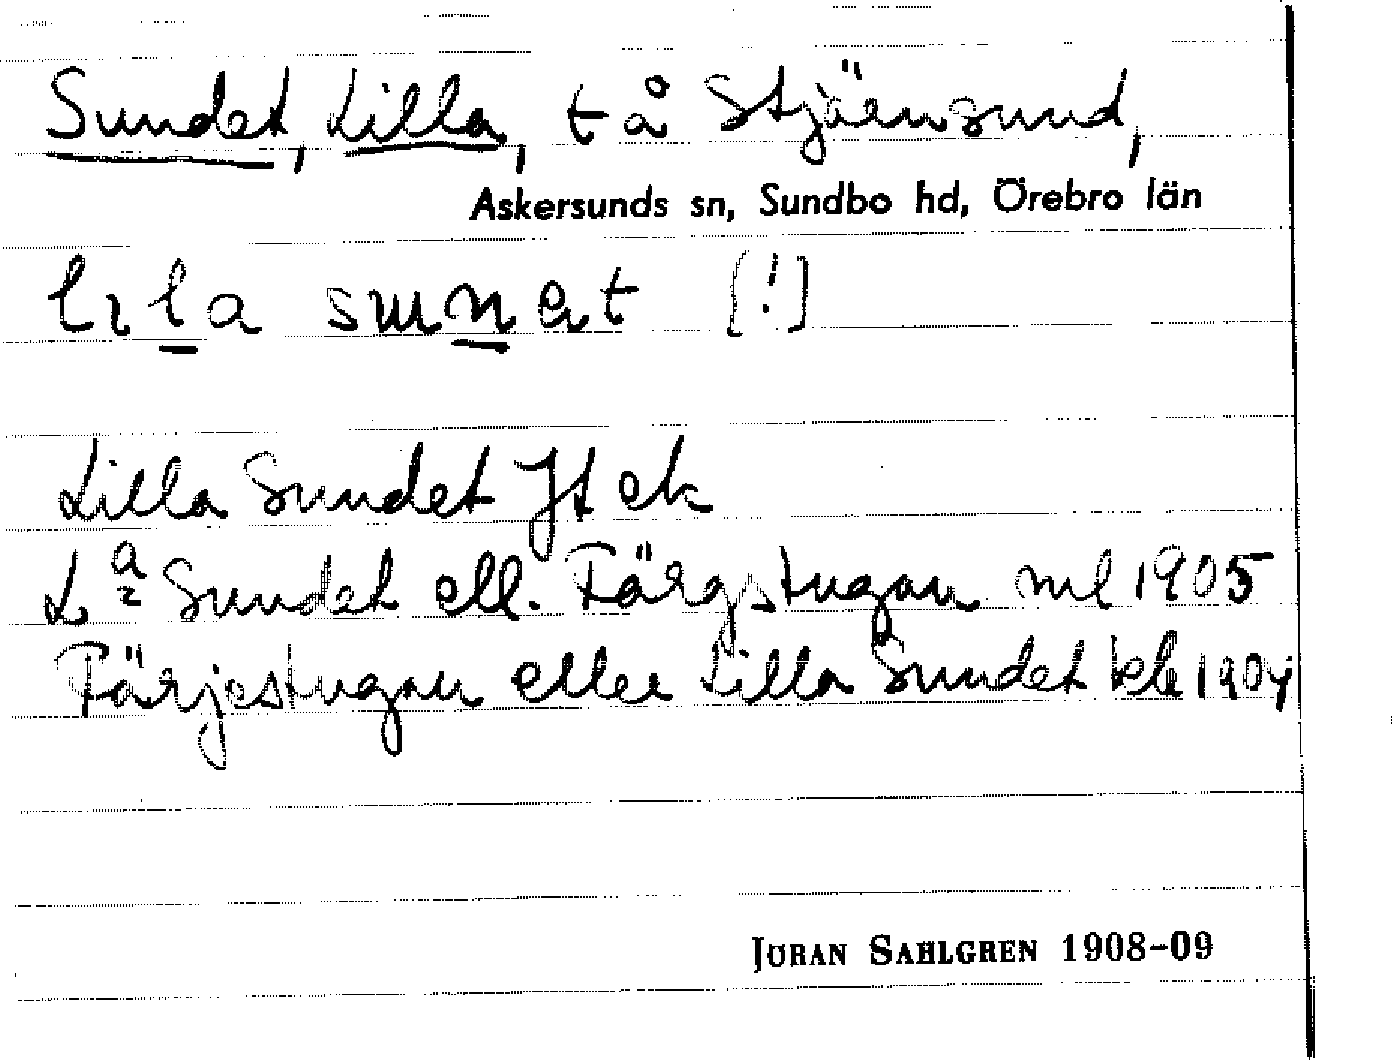 Sundet, Lilla, t å Stjärnsund,
Askersunds sn, Sundbo hd, Örebro län
lila sunnat [!]
Lilla Sundet Jt ek
L:a Sundet ell. Färgstugan ml 1905
Färjestugan eller Lilla Sundet kb 1904
JÖRAN SAHLGREN 1908-09